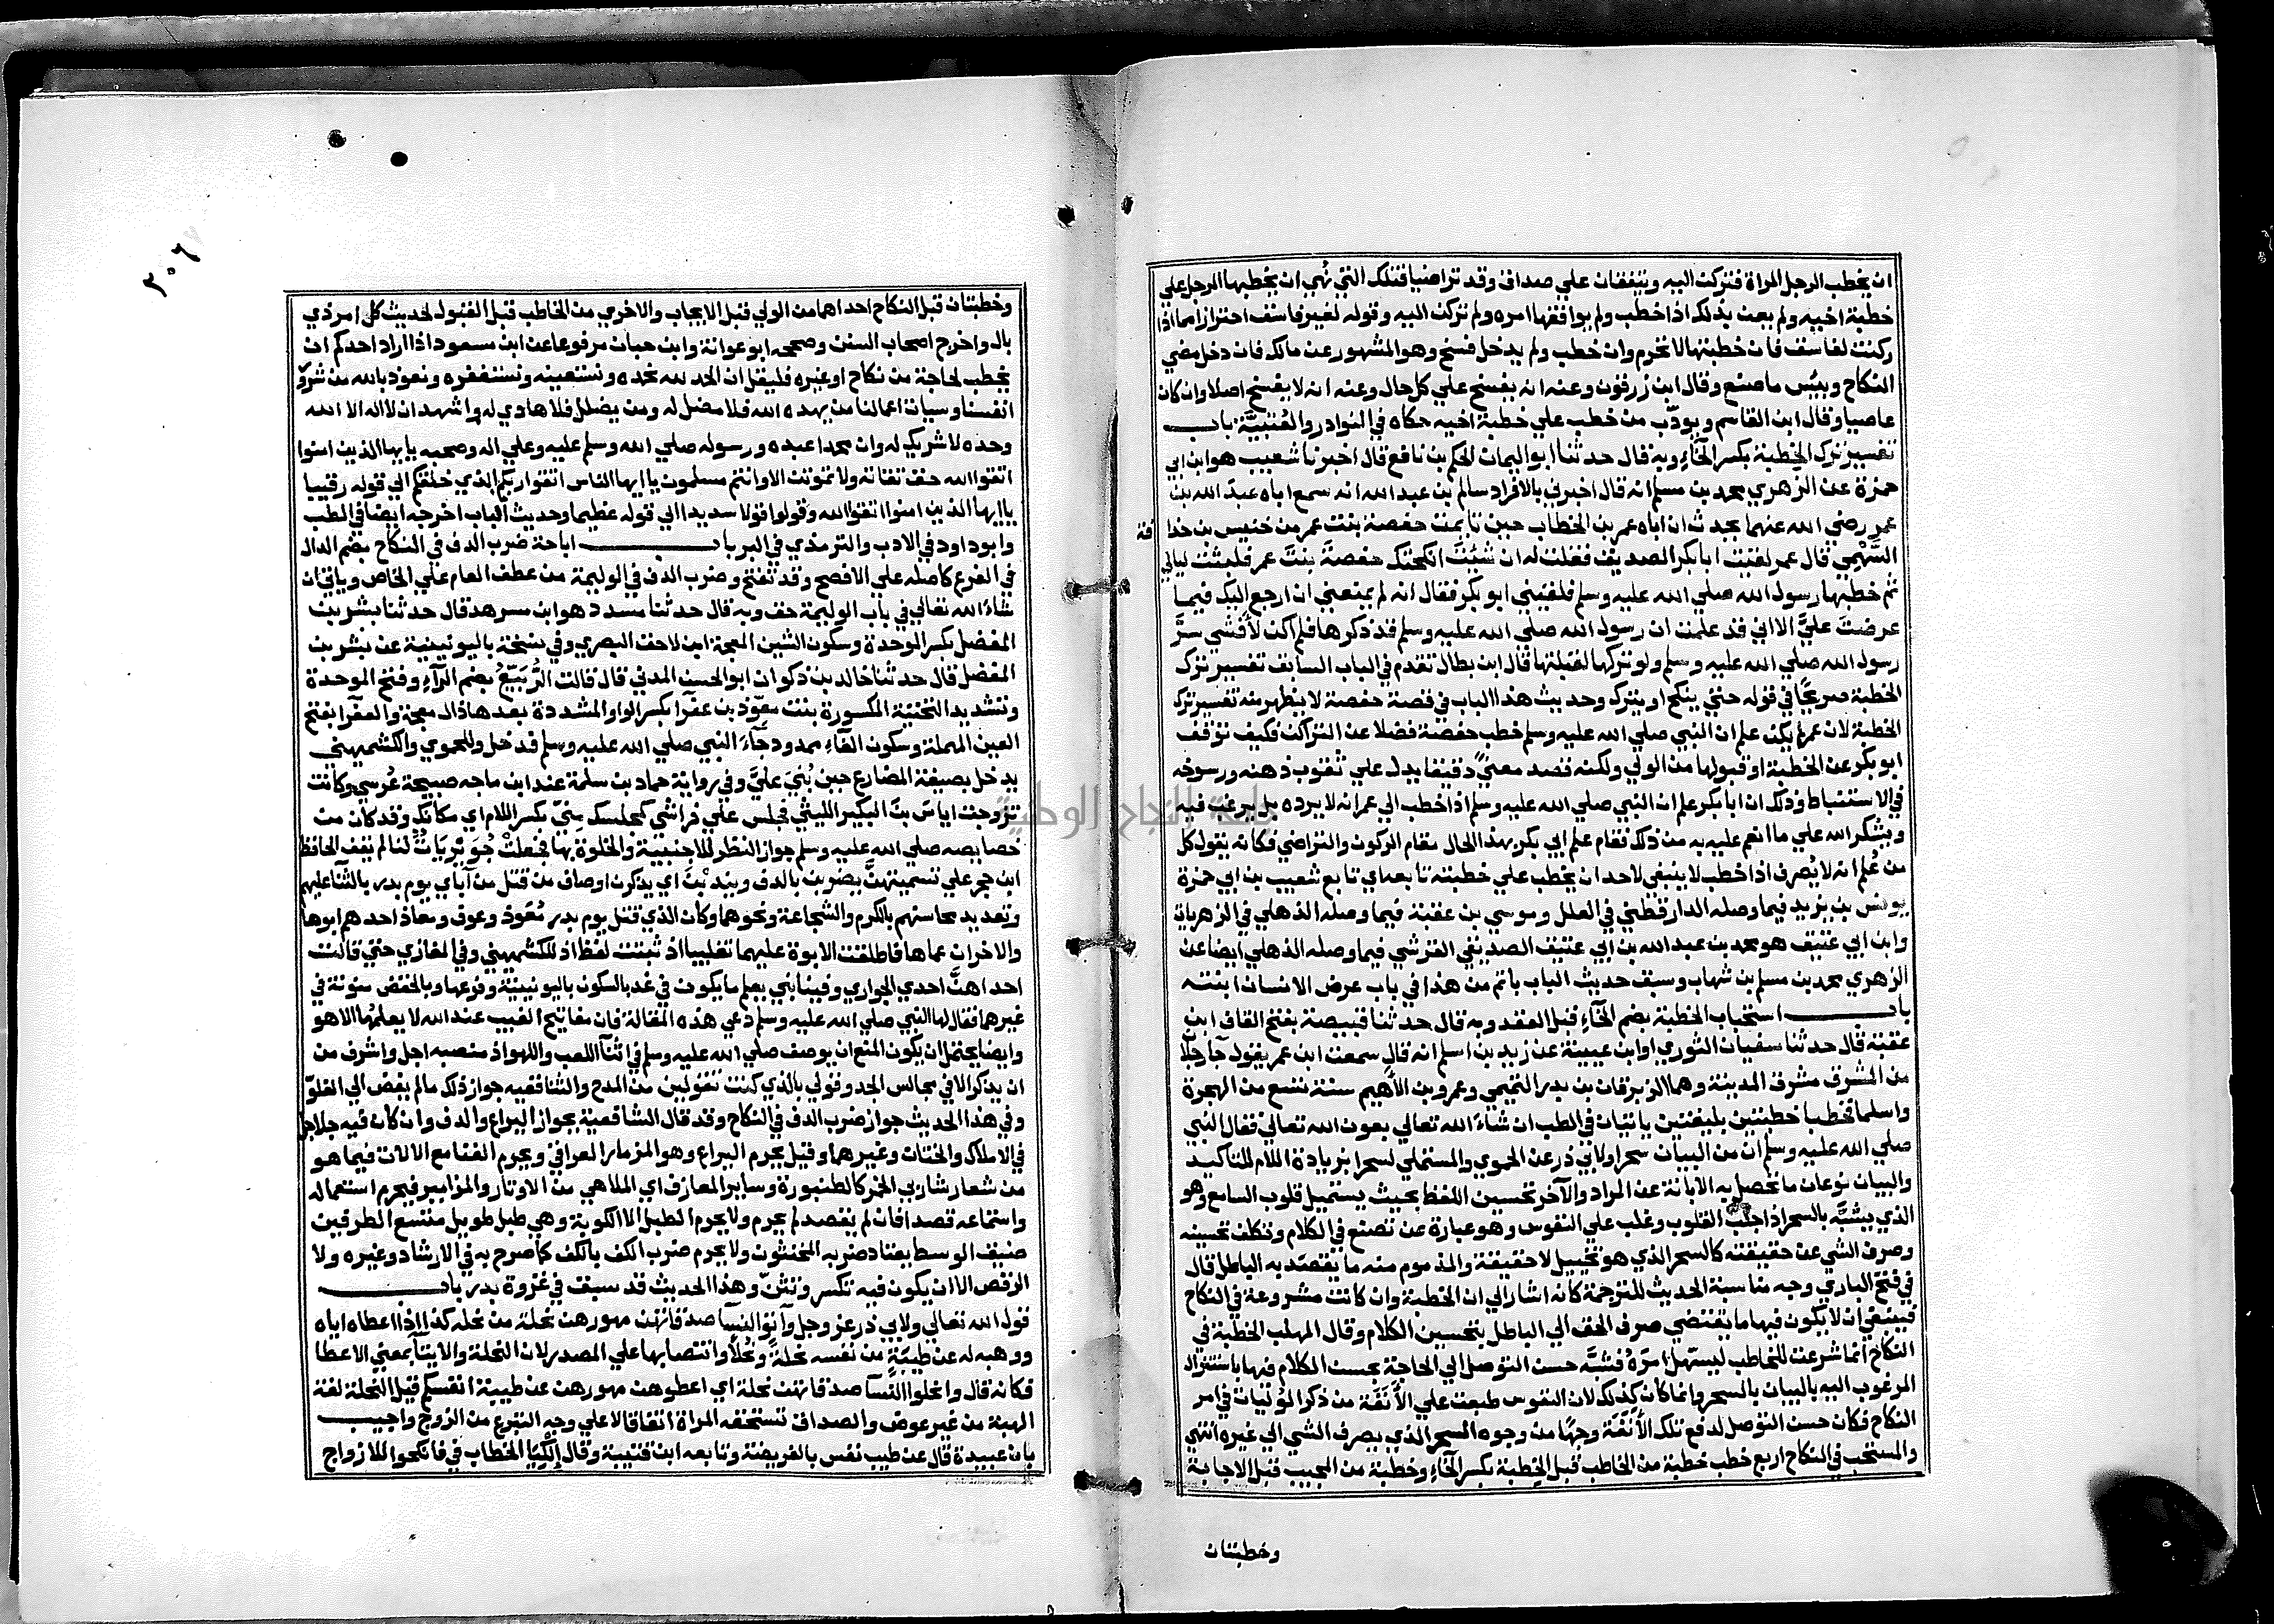 ان يخطب الرجل المراة فتركن اليه ويتفقان علي صداق وقد تراضيا فتلك التي نُهي ان يخطبها الرجل علي
خطبة اخيه ولم يعن بذلك اذا خطب ولم يوافقها امره ولم تركن اليه وقوله لغير فاسق احترازا مما اذا
ركنت لفاسق فان خطبتها لا تحرم وان خطب ولم يدخل فسخ وهو المشهور عن مالك فان دخل مضي
النكاح وبيس ما صنع وقال ابن زرقون وعنه انه يفسخ علي كل حال وعنه انه لا يفسخ اصلا وان كان
عاصيا وقال ابن القاسم ويودّب من خطب علي خطبة اخيه حكاه في النوادر والعُتبيَّة باب
تفسير ترك الخِطبة بكسر الخآءِ وبه قال حدثنا ابو اليمان الحكم بن نافع قال اخبرنا شعيب هو ابن ابي
حمزة عن الزهري محمد بن مسلم انه قال اخبرني بالافراد سالم بن عبد الله انه سمع اباه عبد الله بن
عمر رضي الله عنهما يحدث ان اباه عمر بن الخطاب حين تايمت حفصة بنت عمر من خنيس بن حذا فة
السَّهْمِي قال عمر لقيت ابا بكر الصديق فقلت له ان شيتَ انكحتك حفصةَ بنتَ عمر فلبثت ليالي
ثم خطبها رسول الله صلي الله عليه وسلم فلقيني ابو بكر فقال انه لم يمنعني ان ارجع اليك فيما
عرضتَ عليَّ الا اني قد علمت ان رسول الله صلي الله عليه وسلم قد ذكرها فلم اكن لأُفْشي سرَّ
رسول الله صلي الله عليه وسلم ولو تركها لقبلتها قال ابن بطال تقدم في الباب السابق تفسير ترك
الخطبة صريحًا في قوله حتي ينكح او يترك وحديث هذا الباب في قصة حفصة لا يظهر منه تفسير ترك
الخطبة لان عمر لم يكن علم ان النبي صلي الله عليه وسلم خطب حفصة فضلا عن التراكن فكيف توقف
ابو بكر عن الخطبة او قبولها من الولي ولكنه قصد معنيً دقيقا يدل علي ثقوب ذهنه ورسوخه
في الاستنباط وذلك ان ابا بكر علم ان النبي صلي الله عليه وسلم اذا خطب الي عمر انه لا يرده بل يرغب فيه
ويشكر الله علي ما انعم عليه به من ذلك فقام علم ابي بكر بهذا الحال مقام الركون والتراضي فكانه يقول كل
من عُلم انه لا يُصرف اذا خطب لا ينبغي لاحد ان يخطب علي خطبته تابعه اي تابع شعيب بن ابي حمزة
يونس بن يزيد فيما وصله الدارقطني في العلل وموسي بن عقبة فيما وصله الذهلي في الزهريات
وابن ابي عتيق هو محمد بن عبد الله بن ابي عتيق الصديقي القرشي فيما وصله الذهلي ايضا عن
الزهري محمد بن مسلم بن شهاب وسبق حديث الباب باتم من هذا في باب عرض الانسان ابنته
باب استحباب الخُطبة بضم الخآءِ قبل العقد وبه قال حدثنا قبيصة بفتح القاف ابن
عقبة قال حدثنا سفيان الثوري او ابن عيينة عن زيد بن اسلم انه قال سمعت ابن عمر يقول جآ رجلا
من المشرق مشرق المدينة وهما الزبرقان بن بدر التميمي وعمرو بن الأهيم سنة تسع من الهجرة
واسلما فخطبا خطبتين بليغتين ياتيان في الطب ان شاءَ الله تعالي بعون الله تعالي فقال النبي
صلي الله عليه وسلم ان من البيان سحرا ولابي ذر عن الحموي والمستملي لسحرا بزيادة اللام للتاكيد
والبيان نوعان ما تحصل به الابانة عن المراد والآخر تحسين اللفظ بحيث يستميل قلوب السامع وهو
الذي يشبَّه بالسحر اذا جلب القلوب وغلب علي النفوس وهو عبارة عن تصنع في الكلام وتكلف تحسينه
وصرف الشي عن حقيقته كالسحر الذي هو تخييل لا حقيقة والمذموم منه ما يقصد به الباطل قال
في فتح الباري وجه مناسبة الحديث للترجمة كانه اشار الي ان الخطبة وان كانت مشروعة في النكاح
فينبغي ان لا يكون فيها ما يقتضي صرف الحق الي الباطل بتحسين الكلام وقال المهلب الخطبة في
النكاح انما شرعت للخاطب ليسهل امرَهُ فشبَّه حسن التوصل الي الحاجة بحسن الكلام فيها باستنزال
المرغوب اليه بالبيان بالسحر وانما كان كذلك لان النفوس طبعت علي الأَنَفَة من ذكر الموليات في امر
النكاح فكان حسن التوصل لدفع تلك الأنفة وجهًا من وجوه السحر الذي يصرف الشي الي غيره انتهي
والمستحب في النكاح اربع خطب خطبة من الخاطب قبل الخِطبة بكسر الخآءِ وخطبة من المجيب قبل الاجابة
وخطبتان
٣٠٦
وخطبتان قبل النكاح احداهما من الولي قبل الايجاب والاخري من الخاطب قبل القبول لحديث كل امر ذي
بال واخرج اصحاب السنن وصححه ابو عوانة وابن حبان مرفوعا عن ابن مسعود اذا اراد احدكم ان
يخطب لحاجة من نكاح او غيره فليقل ان الحمد لله نحمده ونستعينه ونستغفره ونعوذ بالله من شرور
انفسنا وسيات اعمالنا من يهده الله فلا مضل له ومن يضلل فلا هادي له واشهد ان لا اله الا الله
وحده لا شريك له وان محمدا عبده ورسوله صلي الله وسلم عليه وعلي اله وصحبه يايها الذين امنوا
اتقوا الله حق تقاته ولا تموتن الا وانتم مسلمون يا ايها الناس اتقوا ربكم الذي خلقكم الي قوله رقيبا
يا ايها الذين امنوا اتقوا الله وقولوا قولا سديدا الي قوله عظيما وحديث الباب اخرجه ايضا في الطب
وابو داود في الادب والترمذي في البر باب اباحة ضرب الدف في النكاح بضم الدال
في الفرع كاصله علي الافصح وقد تفتح وضرب الدف في الوليمة من عطف العام علي الخاص وياتي ان
شاءَ الله تعالي في باب الوليمة حق وبه قال حدثنا مسدد هو ابن مسرهد قال حدثنا بشر بن
المفضل بكسر الموحدة وسكون الشين المعجمة ابن لاحق البصري وفي نسخة باليونينية عن بشر بن
المفضل قال حدثنا خالد بن ذكوان ابو الحسن المدني قال قالت الرُّبَيّعُ بضم الرآءِ وفتح الموحدة
وتشديد التحتية المكسورة بنت معوّذ بن عفرآ بكسر الواو المشددة بعدها ذال معجمة والعفرآ بفتح
العين المهملة وسكون الفآءِ ممدود جآءَ النبي صلي الله عليه وسلم فدخل وللحموي والكشميهني
يدخل بصيغة المضارع حين بُنيَ عليَّ وفي رواية حماد بن سلمة عند ابن ماجه صبيحة عُرسي وكانت
تزوجت اياسَ بنَ البكير الليثي فجلس علي فراشي كمجلسك مِنّي بكسر اللام اي مكانك وقد كان من
خصايصه صلي الله عليه وسلم جواز النظر للاجنبية والخلوة بها فجعلتْ جُوَيْرِيَاتٌ لنا لم يقف الحافظ
ابن حجر علي تسميتهنَّ يضربن بالدف ويندُبْنَ اي يذكرن اوصاف من قتل من آباي يوم بدر بالثنآ عليهم
وتعديد محاسنهم بالكرم والشجاعة ونحوهما وكان الذي قتل يوم بدر مُعَوذ وعوف ومعاذ احدهم ابوها
والاخران عماها فاطلقت الابوة عليهما تغليبا اذ ثبتت لفظ اذ للكشميهني وفي المغازي حتي قالت
احداهنَّ احدي الجواري وفينا نبي يعلم ما يكون في غد بالسكون باليونينية وفرعها وبالخفض منونة في
غيرهما فقال لها النبي صلي الله عليه وسلم دعي هذه المقالة فان مفاتيح الغيب عند الله لا يعلمُها الا هو
وايضا يحتمل ان يكون المنع ان يوصف صلي الله عليه وسلم في اثنآ اللعب واللهو اذ منصبه اجل واشرف من
ان يذكر الا في مجالس الجد وقولي بالذي كنت تقولين من المدح والثنا ففيه جواز ذلك ما لم يفض الي الغلوّ
وفي هذا الحديث جواز ضرب الدف في النكاح وقد قال الشافعية بجواز اليراع والدف وان كان فيه جلاجل
في الاملاك والختان وغيرهما وقيل يحرم اليراع وهو المزمار العراقي ويحرم الغنا مع الالات فيما هو
من شعار شاربي الخمر كالطنبورة وساير المعازف اي الملاهي من الاوتار والمزامير فيحرم استعماله
واستماعه قصدا فان لم يقصد لم يحرم ولا يحرم الطبل الا الكوبة وهي طبل طويل متسع الطرفين
ضيق الوسط يعتاد ضربه المخنثون ولا يحرم ضرب الكف بالكف كما صرح به في الارشاد وغيره ولا
الرقص الا ان يكون فيه تكسر وتثنّ وهذا الحديث قد سبق في غزوة بدر باب
قول الله تعالي ولابي ذر عز وجل وآتوا النسآ صدقاتهن مهورهن نحلة من نحله كذا اذا اعطاه اياه
ووهبه له عن طيبَةٍ من نفسه نحلةً ونُحْلاً وانتصابها علي المصدر لان النحلة والايتآ بمعني الاعطا
فكانه قال وانحلوا النسآ صدقاتهن نحلة اي اعطوهن مهورهن عن طيبة انفسكم قيل النحلة لغة
الهبة من غير عوض والصداق تستحقه المراة اتفاقا لا علي وجه التبرع من الزوج واجيب
بان عبيدة قال عن طيب نفس بالفريضة وتابعه ابن قتيبة وقال إِلْكِيَا الخطاب في فانكحوا للازواج
جامعة النجاح الوطنية